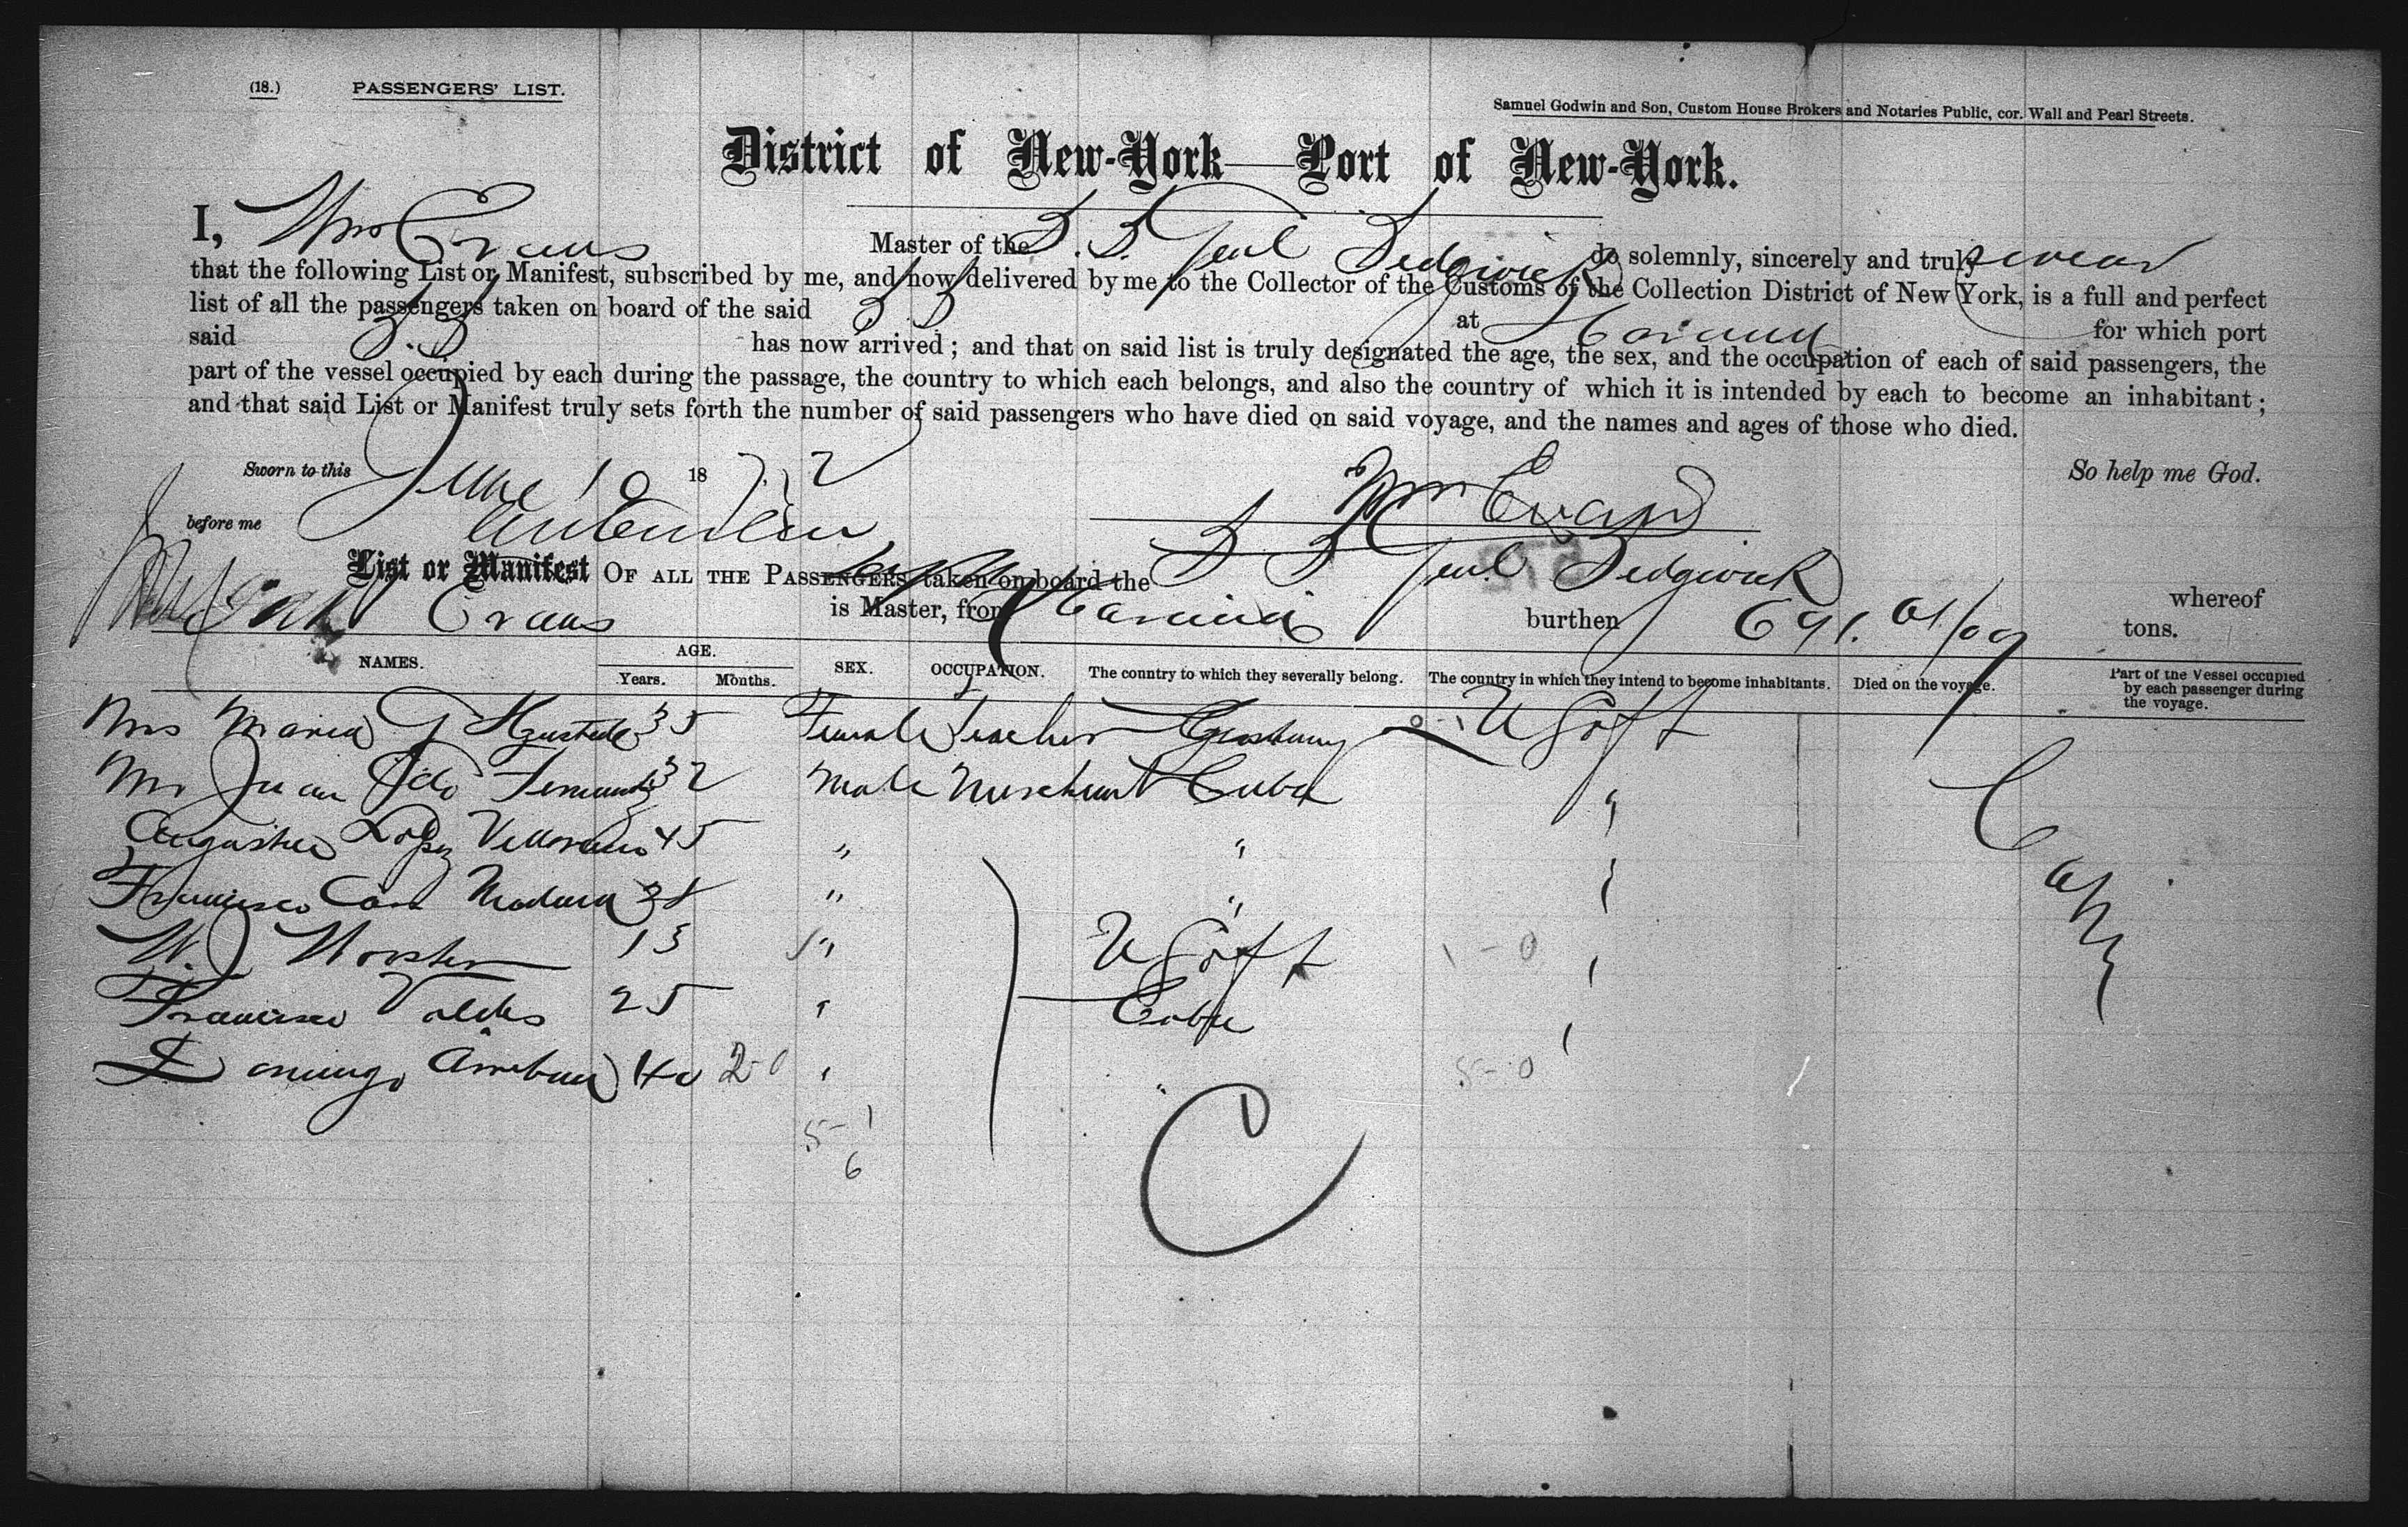 (18.) PASSENGERS' LIST.
Samuel Godwin and Son, Custom House Brokers and Notaries Public, cor. Wall and Pearl Streets.
District of New-York—Port of New-York.
I, Wm Evans Master of the S. S. Genl Sedgwick do solemnly, sincerely and truly swear
that the following List or Manifest, subscribed by me, and now delivered by me to the Collector of the Customs of the Collection District of New York, is a full and perfect
list of all the passengers taken on board of the said S S at Havana for which port
said S. S has now arrived; and that on said list is truly designated the age, the sex, and the occupation of each of said passengers, the
part of the vessel occupied by each during the passage, the country to which each belongs, and also the country of which it is intended by each to become an inhabitant;
and that said List or Manifest truly sets forth the number of said passengers who have died on said voyage, and the names and ages of those who died.
Sworn to this June 10 1872 So help me God.
before me Wm Evans
List or Manifest OF ALL THE PASSENGERS taken on board the S S Genl Sedgwick whereof
Evans is Master, from Havana burthen 691. 01/00 tons.
NAMES. AGE. Years. Months. SEX. OCCUPATION. The country to which they severally belong. The country in which they intend to become inhabitants. Died on the voyage. Part of the Vessel occupied by each passenger during the voyage.
Mrs Maria G 35 Female Teacher 0-1 U S of A
Mr Juan Fernandz 32 Male Merchant Cuba "
Lopez 45 " " Cabin
Francisco 38 " "
W. J Worster 13 " U S of A 1-0
Francisco Valdes 25 " Cuba
Domingo 40 2-0 " " 5-0
5-1
6
C